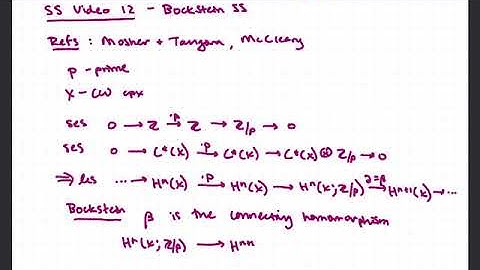 SS Video 12 - Bockstein SS
Refs : Mosher + Tangora, McCleary
p - prime
X - CW cpx
ses 0 → Z →·p Z → Z/p → 0
ses 0 → C*(X) →·p C*(X) → C*(X) ⊗ Z/p → 0
⇒ les ··· → Hⁿ(X) →·p Hⁿ(X) → Hⁿ(X; Z/p) →∂=β Hⁿ⁺¹(X) → ···
Bockstein β is the connecting homomorphism
Hⁿ(X; Z/p) → Hⁿ⁺